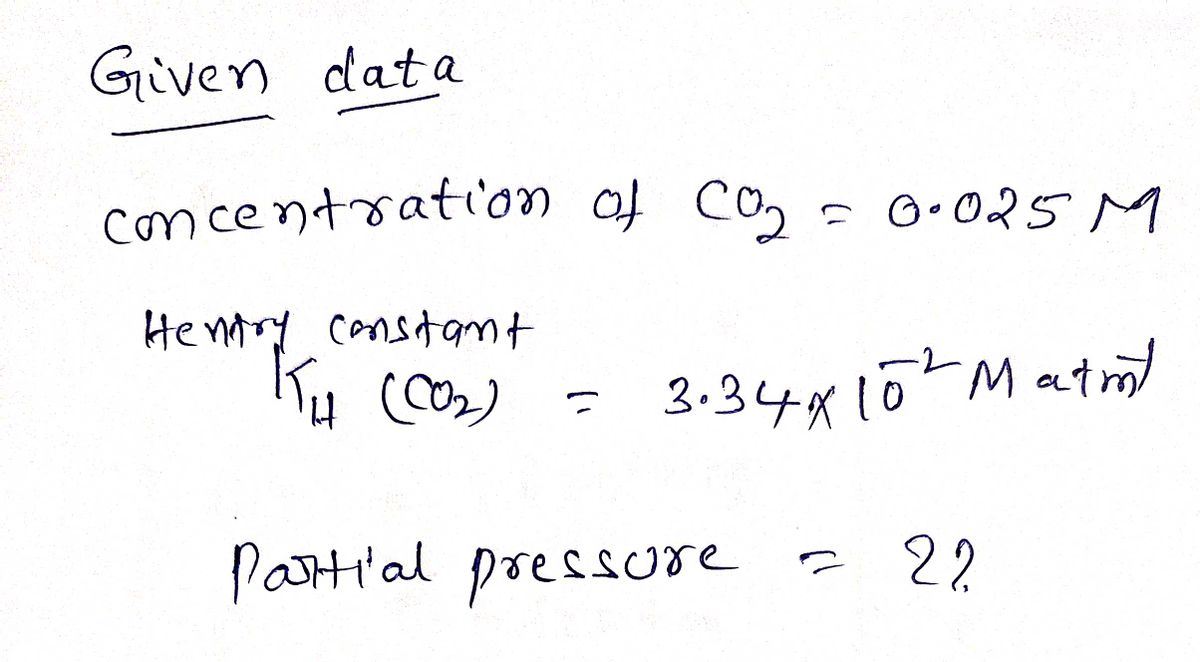 Given data
concentration of CO₂ = 0.025 M
Henry constant
K_H (CO₂) = 3.34 x 10⁻² M atm⁻¹
Partial pressure = ??